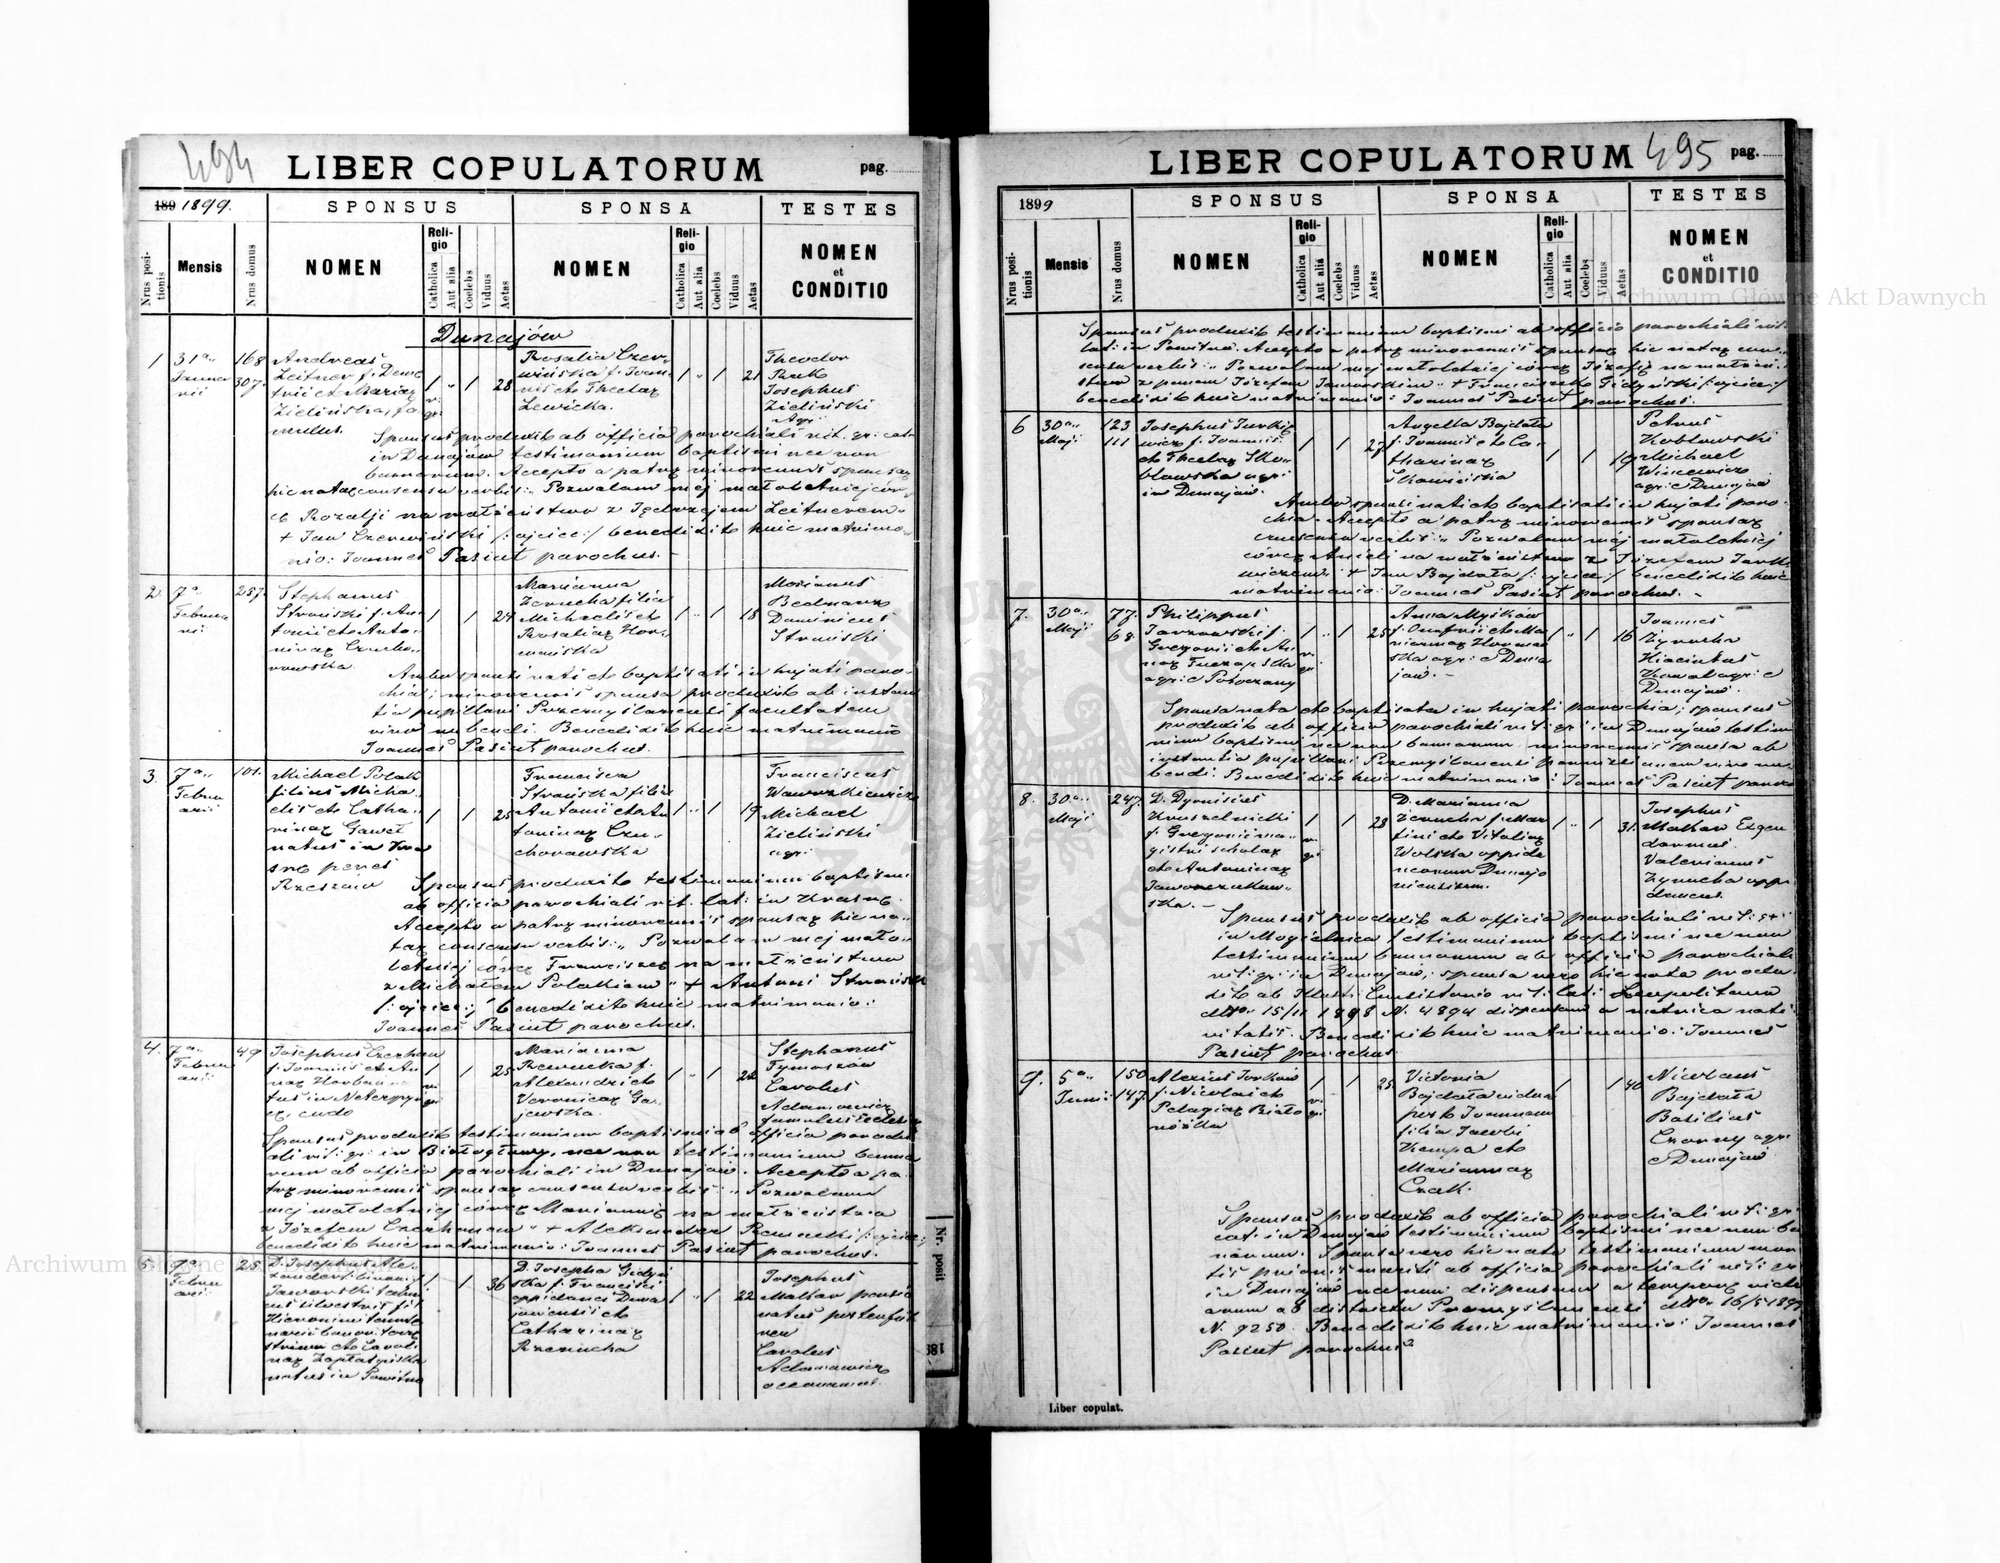 494
LIBER COPULATORUM
pag.
189 1899.
SPONSUS
SPONSA
TESTES
Nrus positionis
Mensis
Nrus domus
NOMEN
Religio
Catholica
Aut alia
Coelebs
Viduus
Aetas
NOMEN
Religio
Catholica
Aut alia
Coelebs
Viduus
Aetas
NOMEN
et
CONDITIO
Dunajów
1 31a
Januarii
168
307.
Andreas
Leitner f. Deme
trii et Mariae
Zielińska, fa
mulus.
1 " 1 28
r. gr.
Rosalia Czer-
wińska f. Joan-
nis et Theclae
Lewicka.
1 " 1 21
Theodor
Ruk
Josephus
Zieliński
Agr.
Sponsus produxit ab officio parochiali rit. gr. cat.
in Dunajów testimonium baptismi nec non
bannorum. Accepto a patre minorennis sponsae
hic natae consensu verbis: „Pozwalam mej małoletniej cór
ce Rozalji na małżeństwo z Jędrzejem Leitnerem"
+ Jan Czerwiński /:ojciec:/ benedixit huic matrimo-
nio: Joannes Pasiut parochus. -
2. 7a
Februa
rii
237.
Stephanus
Stroński f. An
tonii et Anto-
ninae Czucho-
nowska.
1 1 24
Marianna
Zerucha filia
Michaelis et
Rosaliae Hor-
1 " 1 18
Marianus
Bednarz
Dominicus
Stroński
Ambo sponsi nati et baptisati in hujati paro-
chia; minorennis sponsa produxit ab instan
tia pupillari Przemyślanensi facultatem
viro nubendi. Benedixit huic matrimonio
Joannes Pasiut parochus.
3. 7a
Febru
arii
101.
Michael Polak
filius Micha
elis et Catha
rinae Gaweł
natus in Kra
sne penes
Rzeszów
1 1 25
Francisca
Strońska filia
Antonii et An
toninae Czu-
chonowska
1 " 1 19
Franciscus
Wawrzkiewicz
Michael
Zieliński
agr.
Sponsus produxit testimonium baptismi
ab officio parochiali rit. lat. in Krasne.
Accepto a patre minorennis sponsae hic na-
tae consensu verbis: „Pozwalam mej mało-
letniej córce Franciszce na małżeństwo
z Michałem Polakiem" + Antoni Stroński
/:ojciec:/ benedixit huic matrimonio:
Joannes Pasiut parochus.
4. 7a
Febru
arii
49
Josephus Czerhan
f. Joannis et An
nae Horban na
tus in Neterpyń
ce, cudo
1 1 25
r. gr.
Marianna
Rzewucka f.
Alexandri et
Veronicae Ga-
jewska.
1 " 1 22
Stephanus
Tymoszów
Carolus
Adamowicz
Sponsus produxit testimonium baptismi ab officio parochi
ali rit. gr. in Białogłowy, nec non testimonium banno
rum ab officio parochiali in Dunajów. Accepto a pa-
tre minorennis sponsae consensu verbis: „Pozwalam
mej małoletniej córce Mariannie na małżeństwo
z Józefem Czerhanem" + Aleksander Rzewucki /:ojciec:/
benedixit huic matrimonio: Joannes Pasiut parochus.
5. 7a
Febru
arii
25.
D. Josephus Ale-
xander
Jaworski
silvestris fil
Hieronimi
et Caroli
nae
natus in Powitno
1 1 36
D. Josepha Gidyń
ska f. Francisci
oppidanei Duna
joviensis et
Catharinae
Rzenucha
1 " 1 22
Josephus
Matkar
Carolus
Adamowicz
495
LIBER COPULATORUM
pag.
1899
SPONSUS
SPONSA
TESTES
Nrus positionis
Mensis
Nrus domus
NOMEN
Religio
Catholica
Aut alia
Coelebs
Viduus
Aetas
NOMEN
Religio
Catholica
Aut alia
Coelebs
Viduus
Aetas
NOMEN
et
CONDITIO
Sponsus produxit testimonium baptismi ab officio parochiali rit.
lat. in Powitno. Accepto a patre minorennis sponsae hic natae con-
sensu verbis: „Pozwalam mej małoletniej córce Józefie na małżeń-
stwo z panem Józefem Jaworskim" + Franciszek Gidyński /:ojciec:/
benedixit huic matrimonio: Joannes Pasiut parochus.
6 30a
Maji
123
111
Josephus Jurkie
wicz f. Joannis
et Theclae Sko-
błowska agr.
in Dunajów.
1 1 27
Angella Bajdała
f. Joannis et Ca-
tharinae
Skowińska
1 1 19
Petrus
Kozłowski
Michael
Wincewicz
agr. e Dunajów
Ambo sponsi nati et baptisati in hujati paro-
chia. Accepto a patre minorennis sponsae
consensu verbis: „Pozwalam mej małoletniej
córce Anieli na małżeństwo z Józefem Jurkie
wiczem: + Jan Bajdała /:ojciec:/ benedixit huic
matrimonio: Joannes Pasiut parochus. -
7. 30a
Maji
77.
68.
Philippus
Jarzowski f.
Gregorii et An
nae
agr. e Potoczany
1 " 1 25
r. gr.
Anna Myśków
f. Onufrii et Ma
riannae
agr. e Duna
jów. -
1 " 1 16
Joannes
Zyrucha
Hiacintus
Kowal agr. e
Dunajów.
Sponsa nata et baptisata in hujati parochia; sponsus
produxit ab officio parochiali rit. gr. in Dunajów testim
nium baptismi nec non bannorum minorennis sponsa ab
instantia pupillari Przemyślanensi
bendi: Benedixit huic matrimonio: Joannes Pasiut paroch
8. 30a
Maji
247.
D. Dyonisius
Kruszelnicki
f. Gregorii ma-
gistri scholae
et Antoninae
1 1 28
r. gr.
D. Marianna
Zerucha f. Mar
tini et Vitaliae
Wolska oppida
neorum Dunajo
viensium.
1 " 1 31.
Josephus
Matkar Exgen
darmus.
Valerianus
Zyrucha oppi
daneus.
Sponsus produxit ab officio parochiali rit. gr.
in Mogielnica testimonium baptismi nec non
testimonium bannorum ab officio parochiali
rit. gr. in Dunajów; sponsa vero hic nata produ
xit ab Illustr. Consistorio rit. lat. Leopoliensi
ddto 15/11 1898 N. 4894 dispensam a metrica nati-
vitatis. Benedixit huic matrimonio: Joannes
Pasiut parochus.
9. 5a
Junii
150
147.
Alexius Jurków
f. Nicolai et
Pelagiae Biało
nóżka
1 1 25.
r. gr.
Victoria
Bajdała vidua
post Joannem
filia Jacobi
Kempa et
Mariannae
Czak.
1 1 40
Nicolaus
Bajdała
Basilius
Czorny agr.
e Dunajów
Sponsus produxit ab officio parochiali rit. gr.
cat. in Dunajów testimonium baptismi nec non ban
norum. Sponsa vero hic nata testimonium mor
tis prioris mariti ab officio parochiali rit. gr.
in Dunajów nec non dispensam a tempore vidu
arum a districtu Przemyślanensi ddto 16/5 1899
N. 9250. Benedixit huic matrimonio: Joannes
Pasiut parochus
Liber copulat.
Nr. posit
Archiwum Główne Akt Dawnych
Archiwum Główne Akt Dawnych